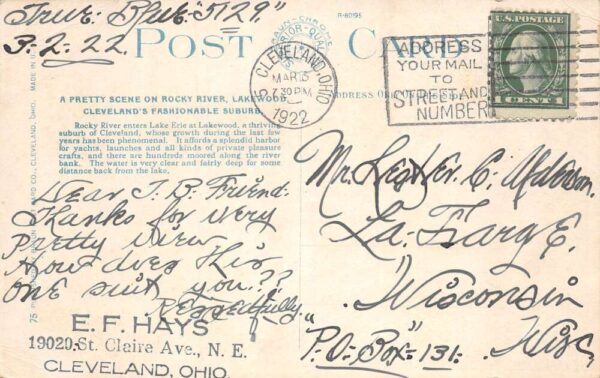 True-Blue-5129"
3-2-22.
R-80195
POST CARD
CLEVELAND, OHIO
MAR 3
7:30 PM
1922
ADDRESS
YOUR MAIL
TO
STREET AND
NUMBER
U.S. POSTAGE
1 CENT 1
A PRETTY SCENE ON ROCKY RIVER, LAKEWOOD,
CLEVELAND'S FASHIONABLE SUBURB.
Rocky River enters Lake Erie at Lakewood, a thriving
suburb of Cleveland, whose growth during the last few
years has been phenomenal. It affords a splendid harbor
for yachts, launches and all kinds of private pleasure
crafts, and there are hundreds moored along the river
bank. The water is very clear and fairly deep for some
distance back from the lake.
Dear T. B. Friend:
Thanks for very
Pretty view
How does this
one suit you.??
Respectfully.
E. F. HAYS
19020 St. Claire Ave., N. E.
CLEVELAND, OHIO.
Mr. Lester C.
La-Farge.
Wisconsin
"P.O-Box-131- Wisc,